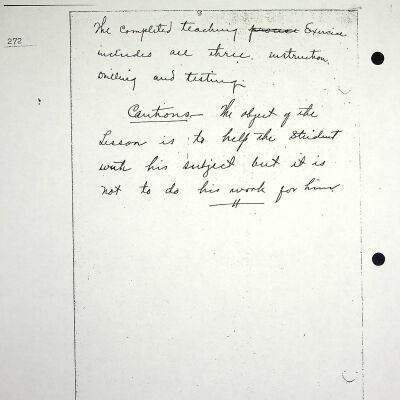 272
The completed teaching process Exercise
includes all three, instruction,
drilling and testing.
Cautions— The object of the
Lesson is to help the Student
with his subject but it is
not to do his work for him